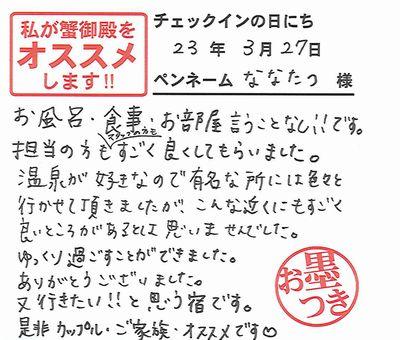 私が蟹御殿を
オススメ
します!!
チェックインの日にち
23年 3月27日
ペンネーム ななたつ 様
お風呂・食事・お部屋 言うことなし!!です。
スタッフの方も
担当の方もすごく良くしてもらいました。
温泉が好きなので有名な所には色々と
行かせて頂きましたが、こんな近くにもすごく
良いところがあるとは思いませんでした。
ゆっくり過ごすことができました。
ありがとうございました。
又行きたい!!と思う宿です。
是非カップル・ご家族・オススメです♡
お墨つき